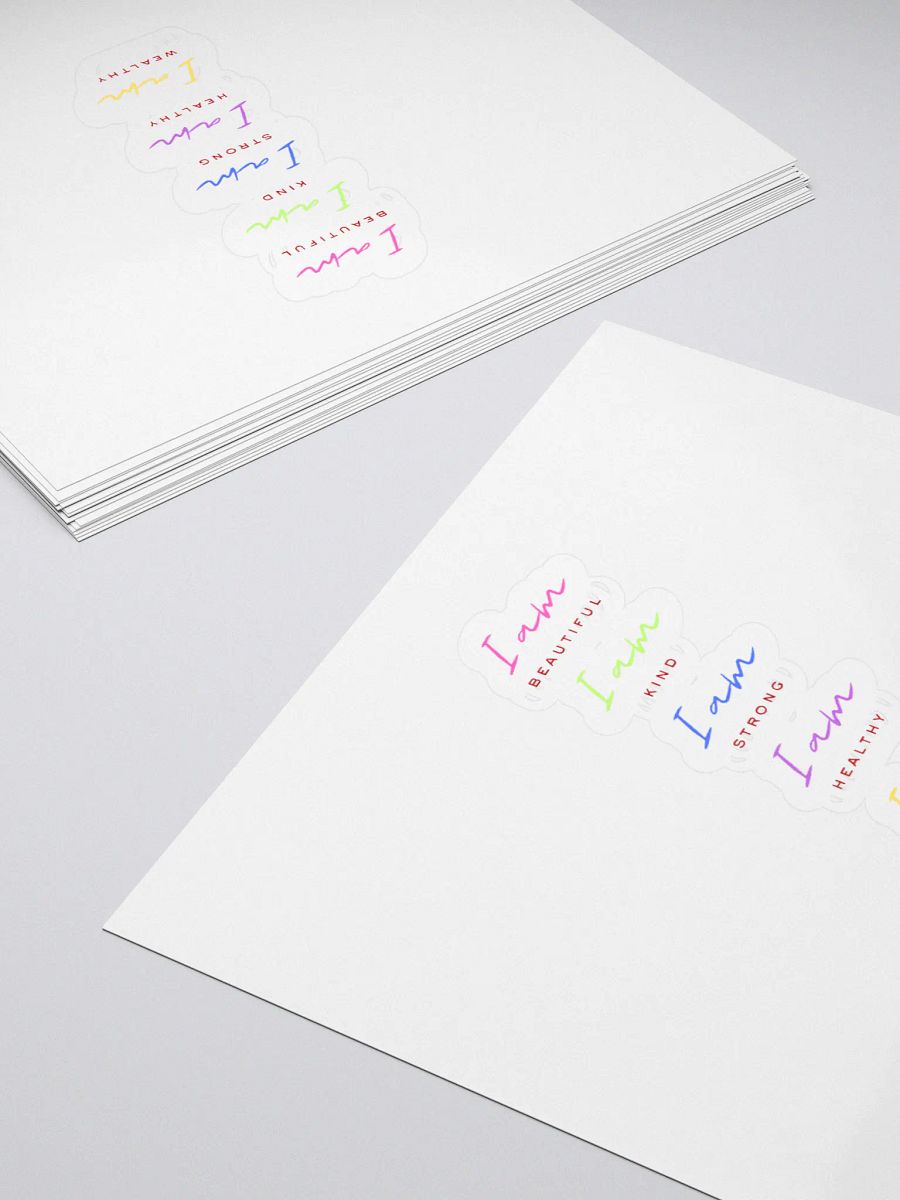 I am
BEAUTIFUL
I am
KIND
I am
STRONG
I am
HEALTHY
I am
WEALTHY
I am
BEAUTIFUL
I am
KIND
I am
STRONG
I am
HEALTHY
I